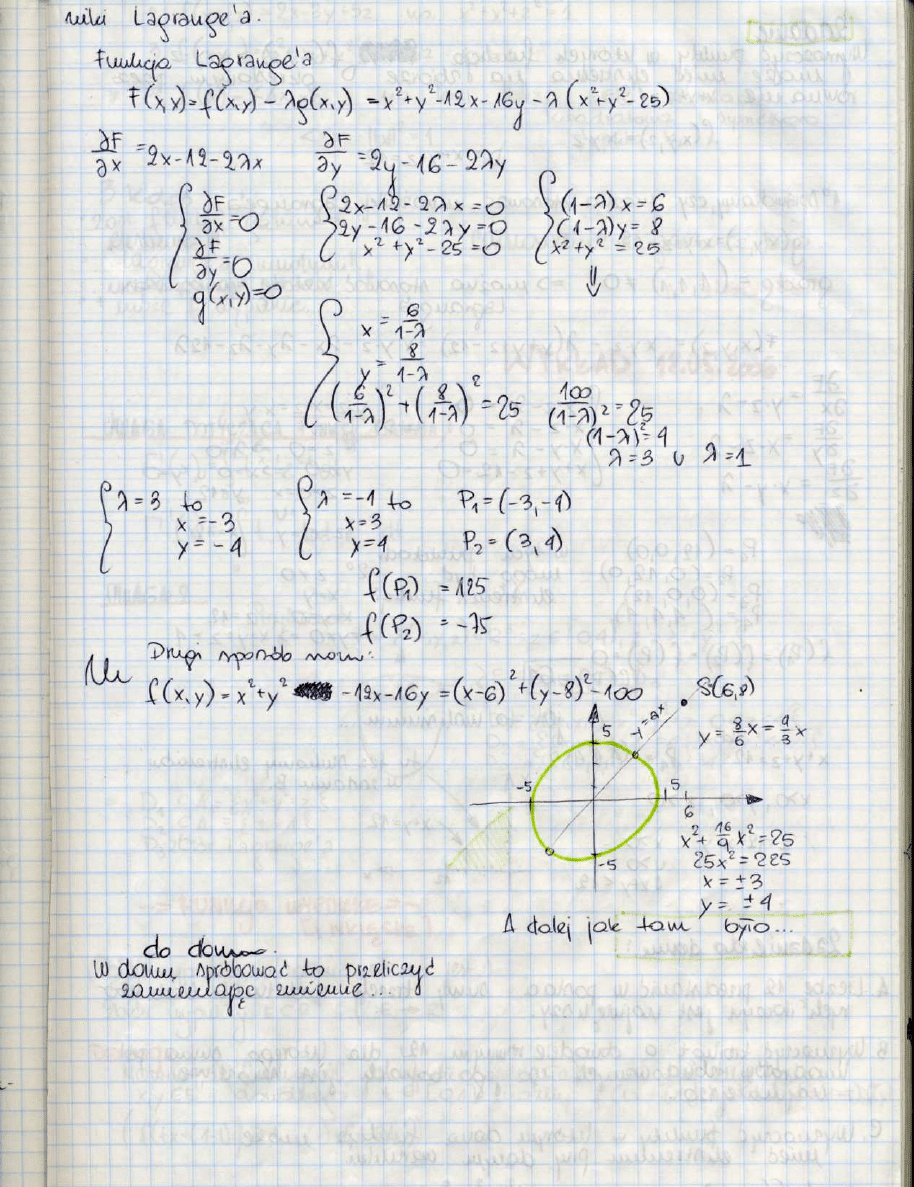 niki Lagrange'a.
Funkcja Lagrange'a
F(x,x)=f(x,y) - λg(x,y) = x²+y²-12x-16y-λ(x²+y²-25)
∂F/∂x = 2x-12-2λx    ∂F/∂y = 2y-16-2λy
{ ∂F/∂x = 0    { 2x-12-2λx = 0    { (1-λ)x = 6
∂F/∂y = 0    2y-16-2λy = 0    (1-λ)y = 8
g(x,y)=0    x²+y²-25 = 0    x²+y² = 25
⇓
{ x = 6/(1-λ)
y = 8/(1-λ)
(6/(1-λ))² + (8/(1-λ))² = 25    100/(1-λ)² = 25
(1-λ)² = 4
λ=3 ∪ λ=1
{ λ=3 to    { λ=-1 to    P₁=(-3,-4)
x=-3    x=3
y=-4    x=4    P₂=(3,4)
f(P₁) = 125
f(P₂) = -75
Drugi sposób
f(x,y) = x²+y² -12x-16y = (x-6)²+(y-8)²-100
S(6,8)
y = 8/6x = 4/3x
5
-5
5
6
-5
x²+16/9x²=25
25x²=225
x=±3
y=±4
A dalej jak tam było...
do domu
W domu spróbować to przeliczyć
zamieniając zmienne...